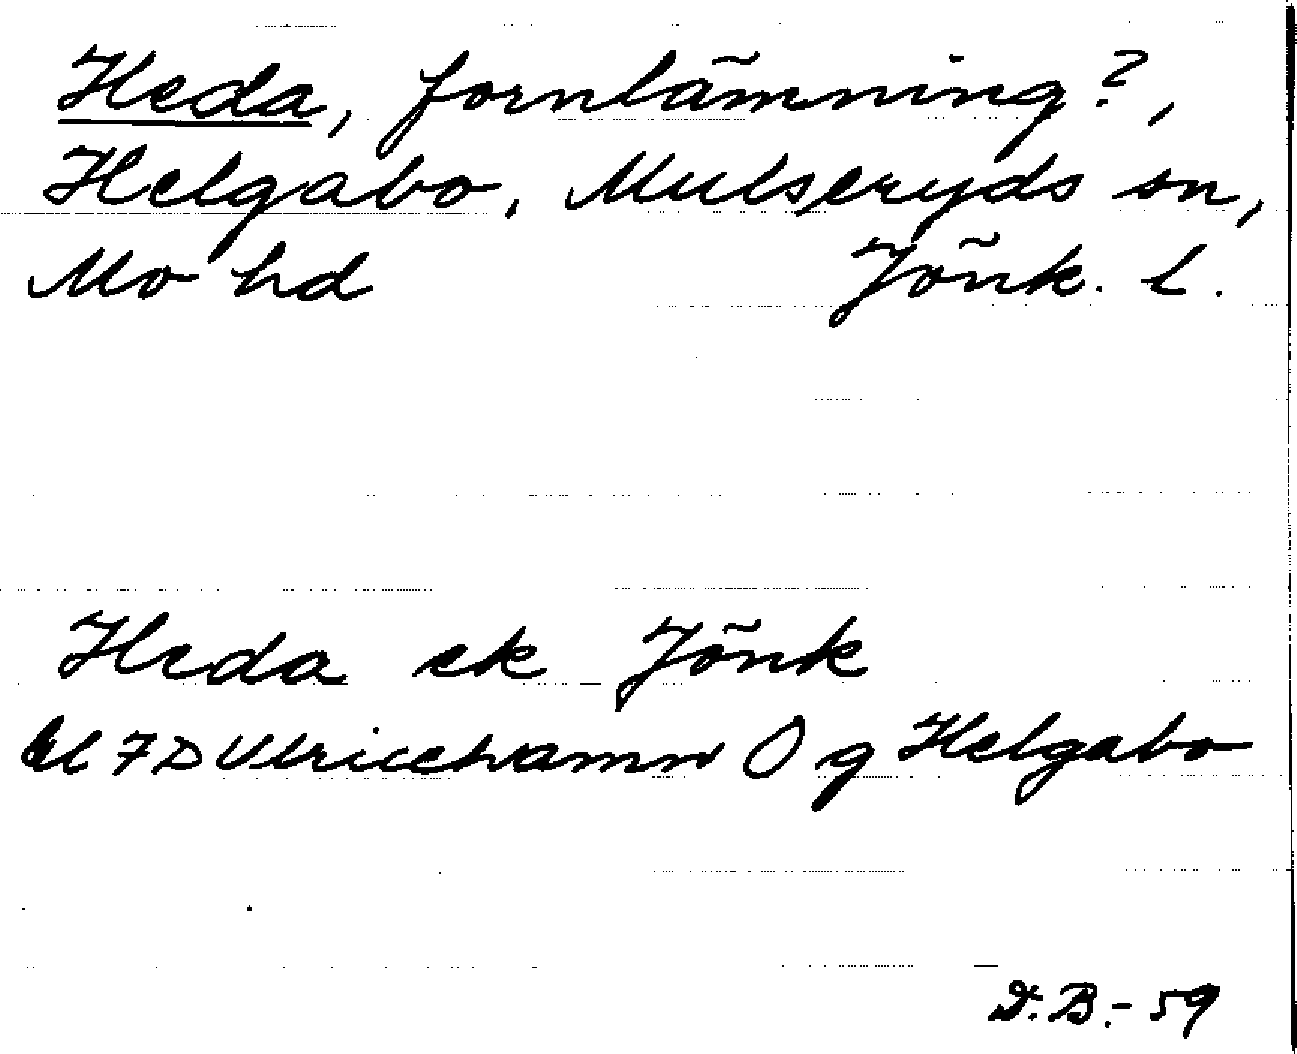 Heda, fornlämning?,
Helgabo, Mulseryds sn,
Mo hd Jönk. l.
Heda ek Jönk
bl 7D Ulricehamn O g Helgabo
D.B.-59